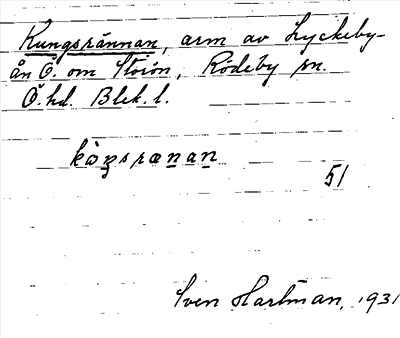 Kungsrännan, arm av Lyckeby-
ån Ö. om Storön, Rödeby sn.
Ö. hd. Blek. l.
kòŋsrænan
51
Sven Hartman, 1931